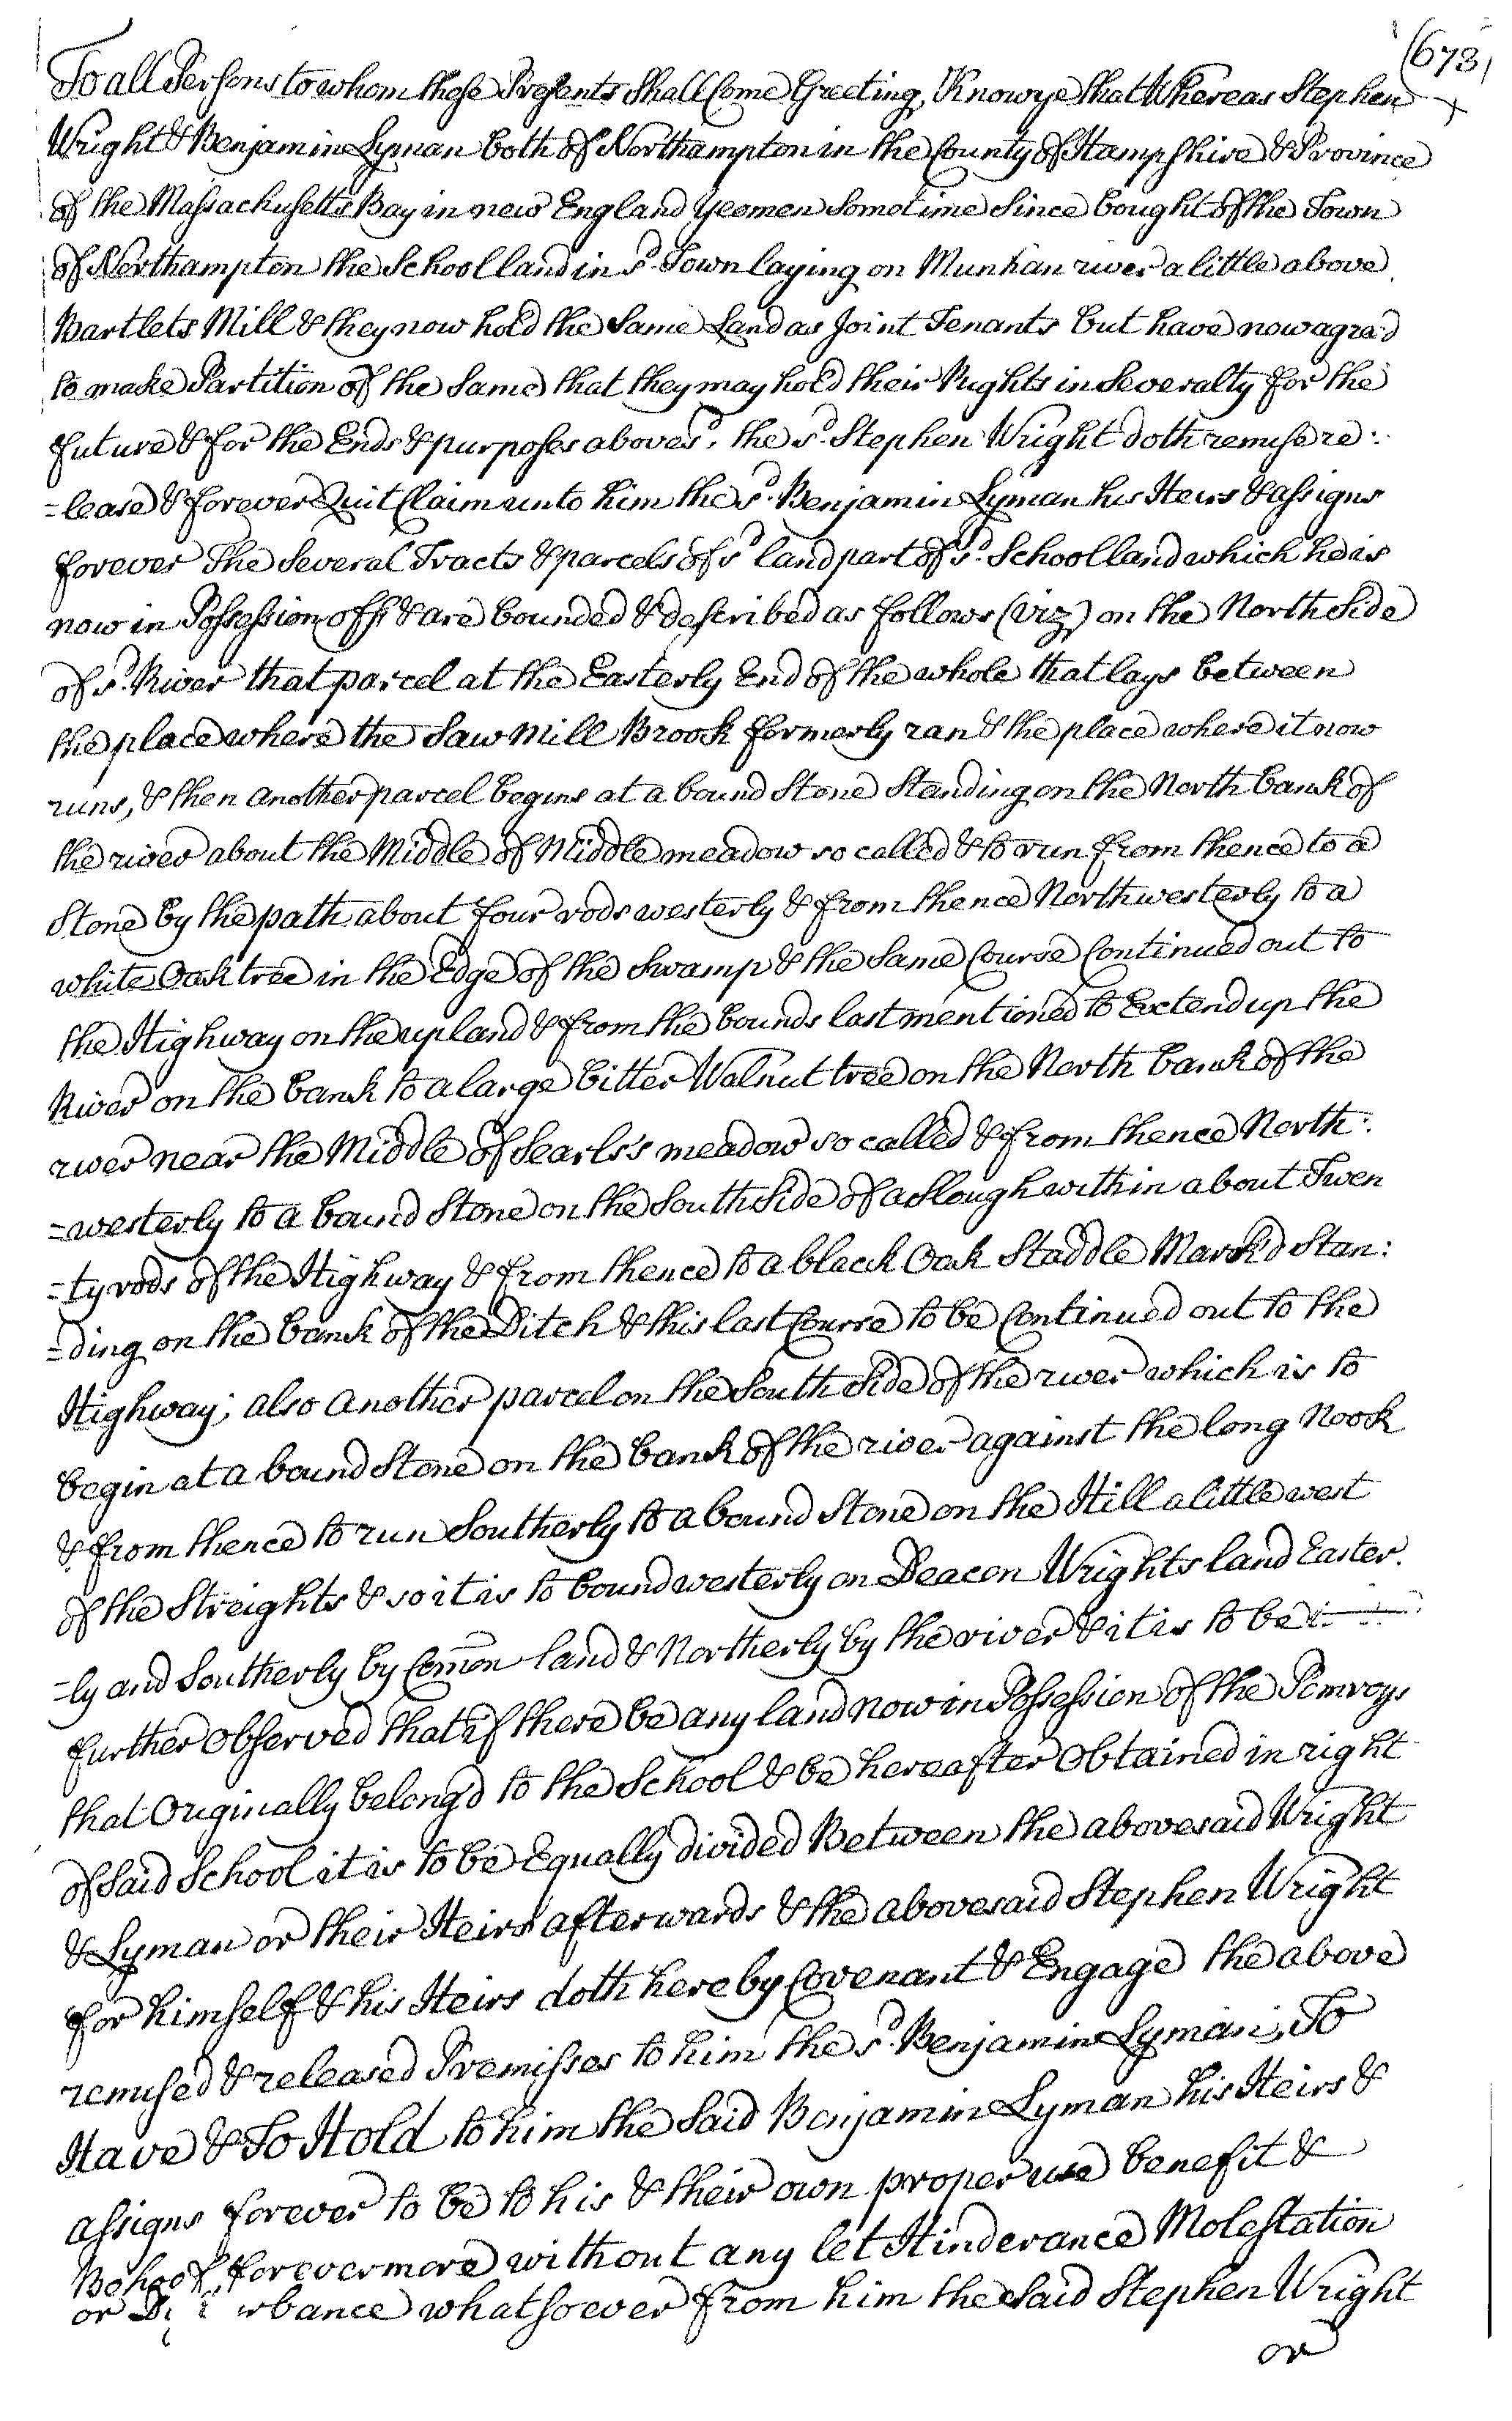 (673)
To all Persons to whom these Presents Shall Come Greeting, Know ye that Whereas Stephen
Wright & Benjamin Lyman both of Northampton in the County of Hampshire & Province
of the Massachusetts Bay in new England Yeomen Sometime Since bought of the Town
of Northampton the School land in sd. Town laying on Munhan river a little above
Bartlets Mill & they now hold the Same Land as Joint Tenants but have now agreed
to make Partition of the Same that they may hold their Rights in Severalty for the
future & for the Ends & purposes abovesd. the sd. Stephen Wright doth remise re:
=lease & forever Quit Claim unto him the sd. Benjamin Lyman his Heirs & assigns
forever The Several Tracts & parcels of sd land part of sd. School land which he is
now in Possession of & are bounded & described as follows (Viz) on the North Side
of sd. River that parcel at the Easterly End of the whole that lays between
the place where the Saw Mill Brook formerly ran & the place where it now
runs, & then another parcel begins at a bound Stone Standing on the North bank of
the river about the Middle of Middle meadow so called & to run from thence to a
Stone by the path about four rods westerly & from thence Northwesterly to a
white Oak tree in the Edge of the Swamp & the Same Course Continued out to
the Highway on the upland & from the bounds last mentioned to Extend up the
River on the bank to a large bitter Walnut tree on the North bank of the
river near the Middle of Searls's meadow so called & from thence North:
=westerly to a bound Stone on the South Side of a Slough within about Twen
=ty rods of the Highway & from thence to a black Oak Staddle Mark'd Stan:
=ding on the bank of the Ditch & this last Course to be Continued out to the
Highway; also another parcel on the South Side of the river which is to
begin at a bound Stone on the bank of the river against the long Nook
& from thence to run Southerly to a bound Stone on the Hill a little west
of the Streights & so it is to bound westerly on Deacon Wrights land Easter.
=ly and Southerly by Comon land & Northerly by the river & it is to be
further Observed that if there be any land now in Possession of the Pomroys
that Originally belong'd to the School & be hereafter Obtained in right
of Said School it is to be Equally divided Between the abovesaid Wright
& Lyman or their Heirs afterwards & the abovesaid Stephen Wright
for himself & his Heirs doth hereby Covenant & Engage the above
remised & released Premisses to him the sd. Benjamin Lyman, To
Have & To Hold to him the Said Benjamin Lyman his Heirs &
assigns forever to be to his & their own proper use benefit &
Behoof, forevermore without any let Hinderance Molestation
or whatsoever from him the Said Stephen Wright
or